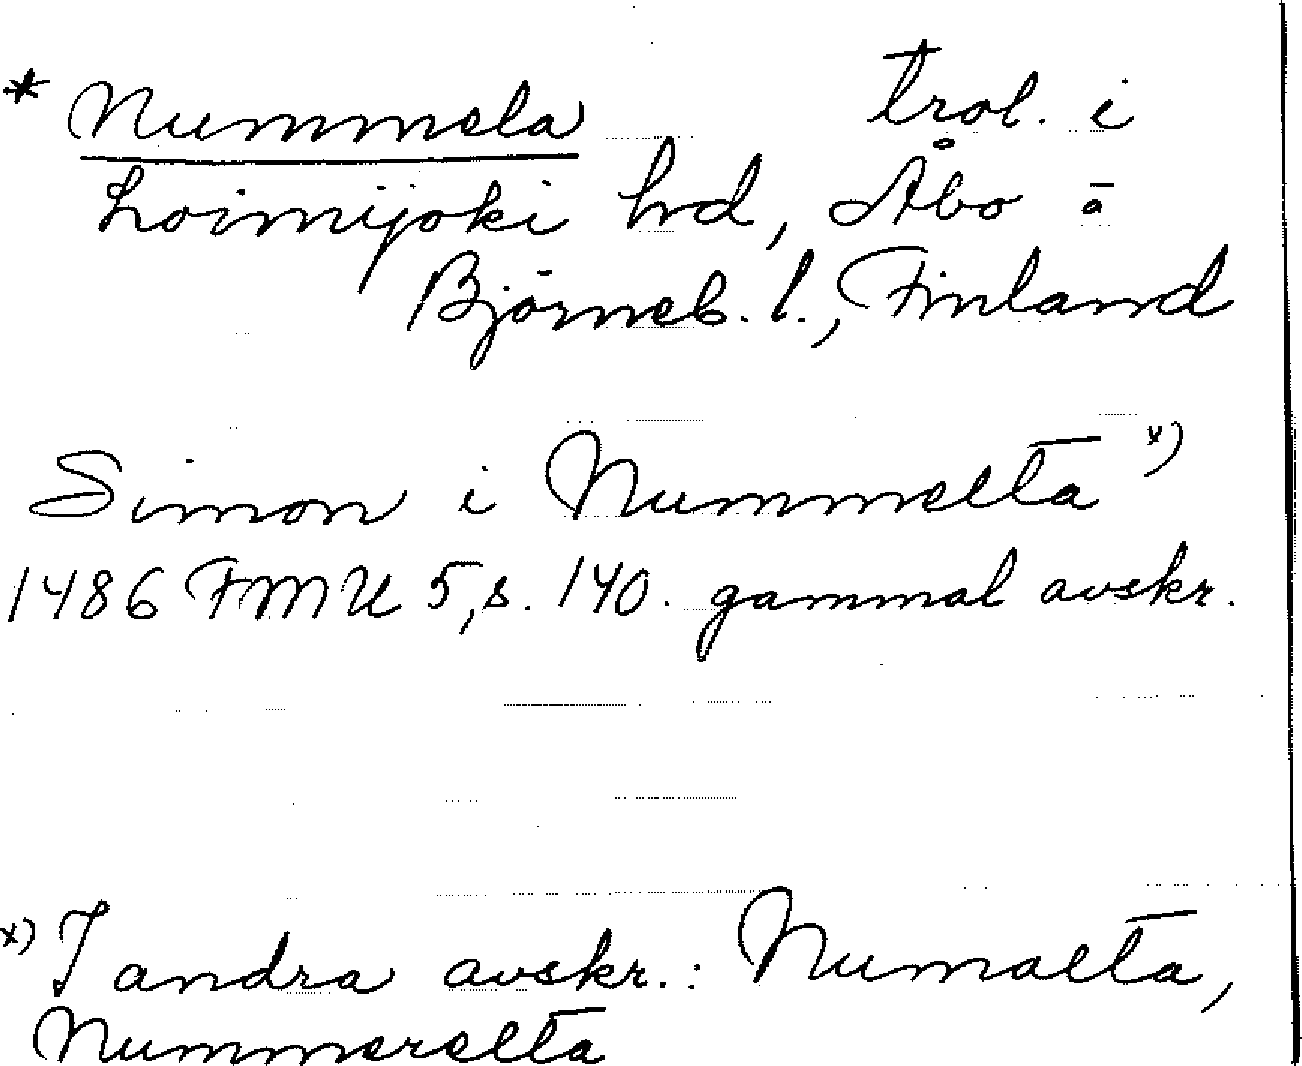 * Nummela trol. i
Loimijoki hd, Åbo ā
Björneb. l., Finland
Simon i Nummelta x)
1486 FMU 5, s. 140. gammal avskr.
x) I andra avskr.: Numalta,
Nummerelta